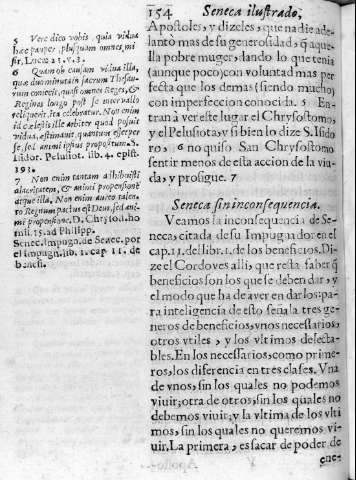 154 Seneca ilustrado,
5 Vere dico vobis, quia vidua
hæc pauper, plusquam omnes, mi
sit. Lucæ 21. v. 3.
6 Quam ob causam vidua illa,
quæ duo minuta in sacrum Thesau-
rum coniecit, quasi omnes Reges, &
Reginas longo post se intervallo
reliquerit, ita celebratur. Non enim
id cælestis ille arbiter quod posuit
vidua, æstimavit, quantum esse per
se, sed animi ipsius propositum. S.
Isidor. Pelusiot. lib. 4. epist.
193.
7 Non enim tantam adhibuisti
alacritatem, & animi propensionē
atque illa. Non enim auceo talen-
to Regnum pactus est Deus, sed ani-
mi propensione. D. Chrysost. ho
mil. 15. ad Philipp.
Senec. Impugn. de Senec. por
el Impugn. lib. 1. cap. 11. de
benefi.
Apostoles, y dizeles, que nadie ade-
lantò mas de su generosidad, q̃ aque-
lla pobre muger, dando lo que tenia
(aunque poco) con voluntad mas per
fecta que los demas (siendo mucho)
con imperfeccion conocida. 5 En-
tran à ver este lugar el Chrysostomo,
y el Pelusiota, y si bien lo dize S. Isido
ro, 6 no quiso San Chrysostomo
sentir menos de esta accion de la viu-
da, y prosigue. 7
Seneca sin inconsequencia.
Veamos la inconsequencia de Se-
neca, citada de su Impugnador en el
cap. 11. del libr. 1. de los beneficios. Di-
ze el Cordoves alli, que resta saber q̃
beneficios son los que se deben dar, y
el modo que ha de aver en darlos: pa-
ra inteligencia de esto señala tres ge-
neros de beneficios, vnos necessarios,
otros vtiles, y los vltimos delecta-
bles. En los necessarios, como prime-
ros, los diferencia en tres clases. Vna
de vnos, sin los quales no podemos
viuir; otra de otros, sin los quales no
debemos viuir; y la vltima de los vlti
mos, sin los quales no queremos vi-
uir. La primera, es sacar de poder de
ene-